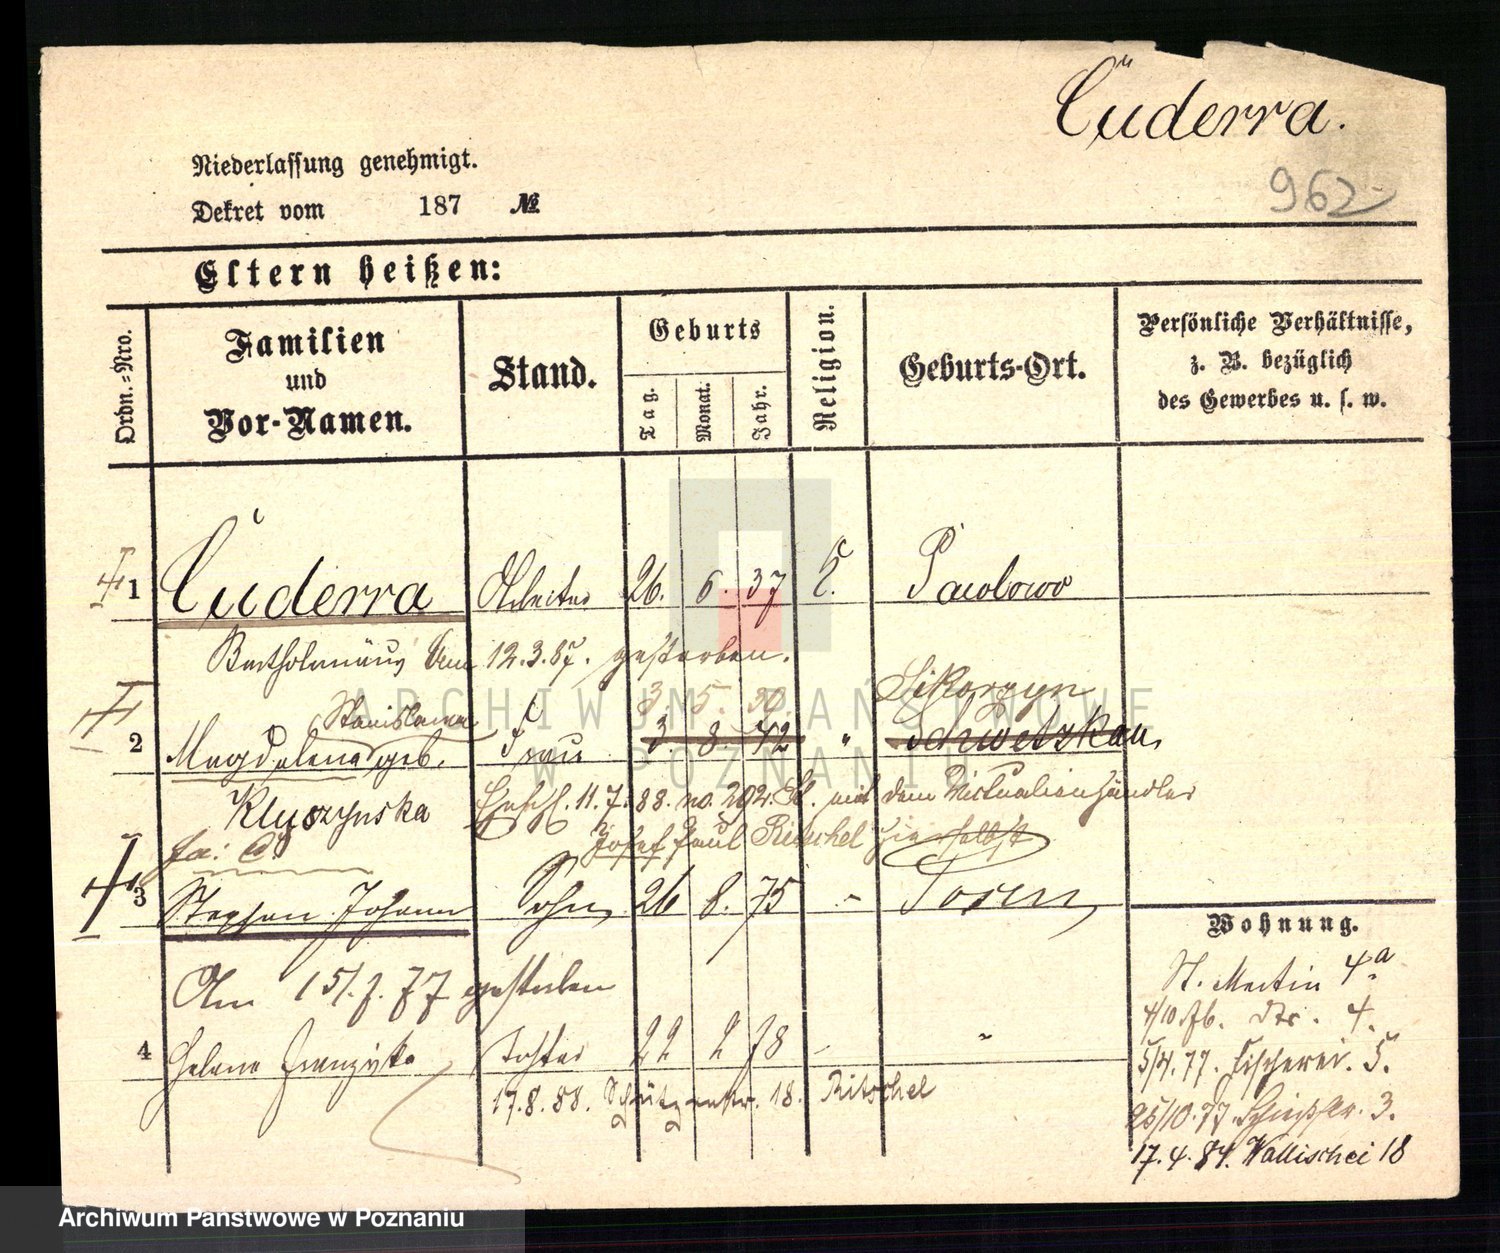 Cuderra.
962
Niederlassung genehmigt.
Dekret vom 187 №
Eltern heißen:
Ordn.-Nro.
Familien und Vor-Namen.
Stand.
Geburts
Tag.
Monat.
Jahr.
Religion.
Geburts-Ort.
Persönliche Verhältnisse,
z. B. bezüglich
des Gewerbes u. s. w.
1 Cuderra Arbeiter 26. 6. 37 Pawlowo
Bartholomäus Am 12.3.87. gestorben.
3. 5. 39. Sikorzyn
Stanislawa
2 Magdalena geb. Frau 3. 8. 42 " Schwetzkau
Kluszynska 11.7.88. no. 292. St. mit dem Victualienhändler
Josef Paul Ritschel hierselbst
3 Stephan Johann Sohn 26 8. 75 - Posen
Am 15/. 7. 77 gestorben
4 Helene Franziska Tochter 22 2 78 - "
17.8.88. Schützenstr. 18. Ritschel
Wohnung.
St. Martin 4a
4/10 76. dto. 4.
5/4. 77. Fischerei. 5.
25/10. 77. Schießstr. 3.
17. 4. 84. Wallischei 18
ARCHIWUM PAŃSTWOWE
W POZNANIU
Archiwum Państwowe w Poznaniu